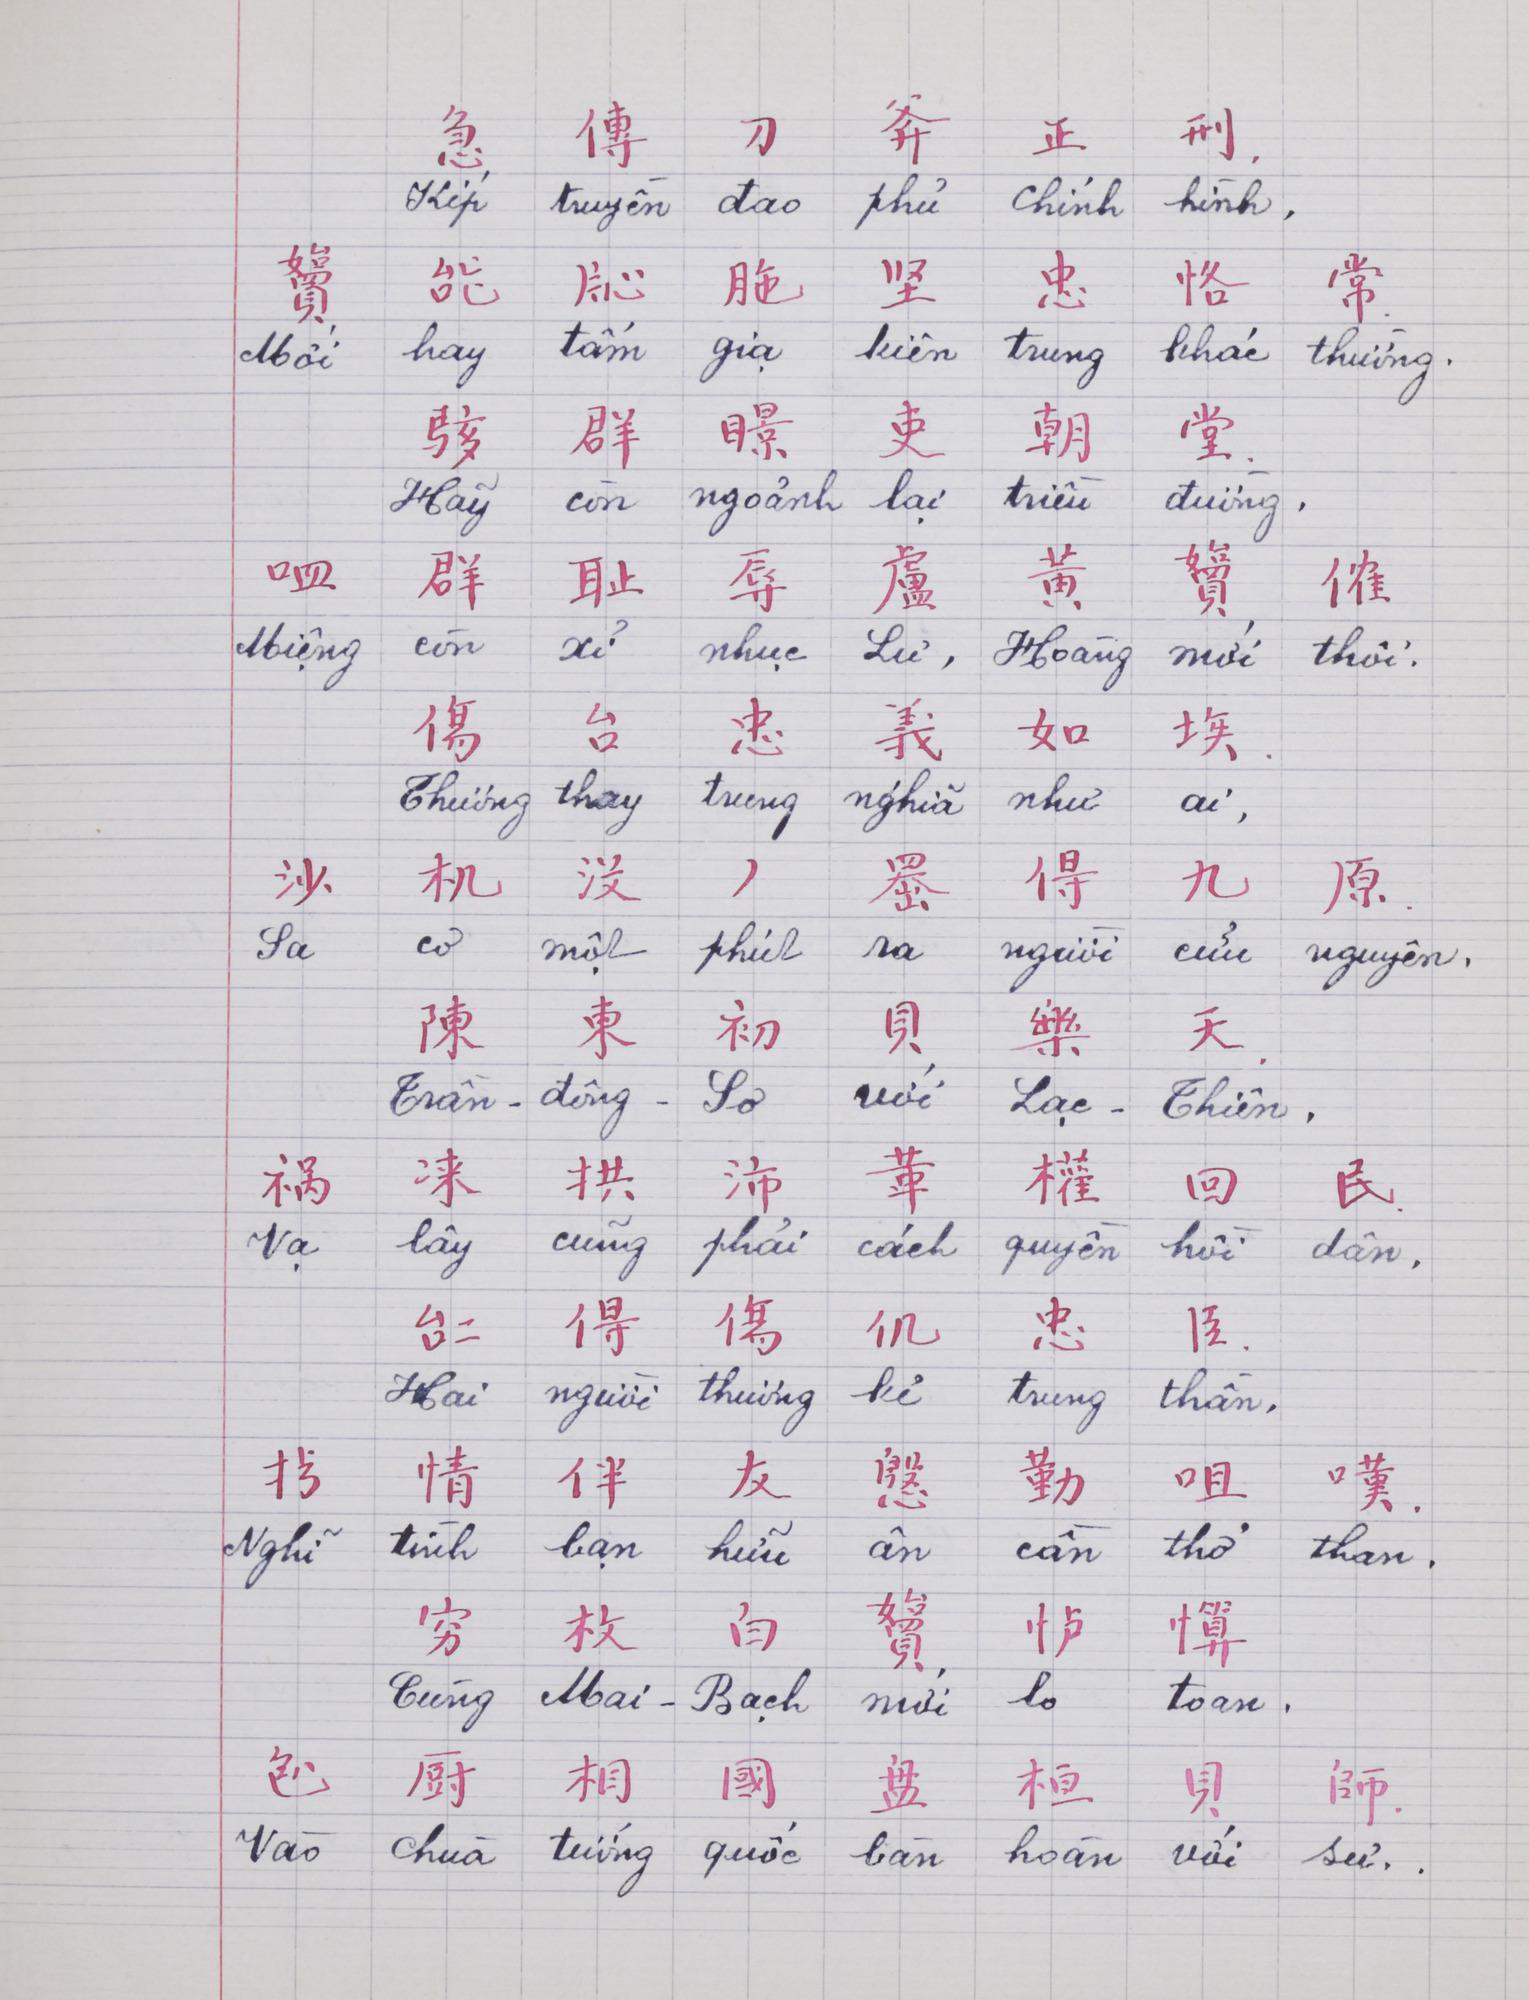 急 傳 刀 斧 正 刑.
Kíp truyền đao phủ chính hình,
能 胞 坚 忠 恪 常.
Mới hay tấm giạ kiên trung khác thường.
駭 群 暻 吏 朝 堂.
Hãy còn ngoảnh lại triều đường,
𠰘 群 耻 辱 盧 黃 催
Miệng còn xỉ nhục Lư, Hoàng mới thôi.
傷 台 忠 義 如 埃.
Thương thay trung nghĩa như ai,
沙 机 沒 丿 得 九 原.
Sa cơ một phút ra người cửu nguyên.
陳 東 初 貝 樂 天.
Trần - đông - Sơ với Lạc - Thiên,
禍 淶 拱 沛 革 權 回 民.
Vạ lây cũng phải cách quyền hồi dân,
𠄩 得 傷 仉 忠 臣.
Hai người thương kẻ trung thần,
情 伴 友 慇 勤 咀 嘆.
Nghĩ tình bạn hữu ân cần thở than.
穷 枚 白 𢗼 憚
Cùng Mai - Bạch mới lo toan.
厨 相 國 盘 桓 貝 師.
Vào chùa tướng quốc bàn hoàn với sư. .